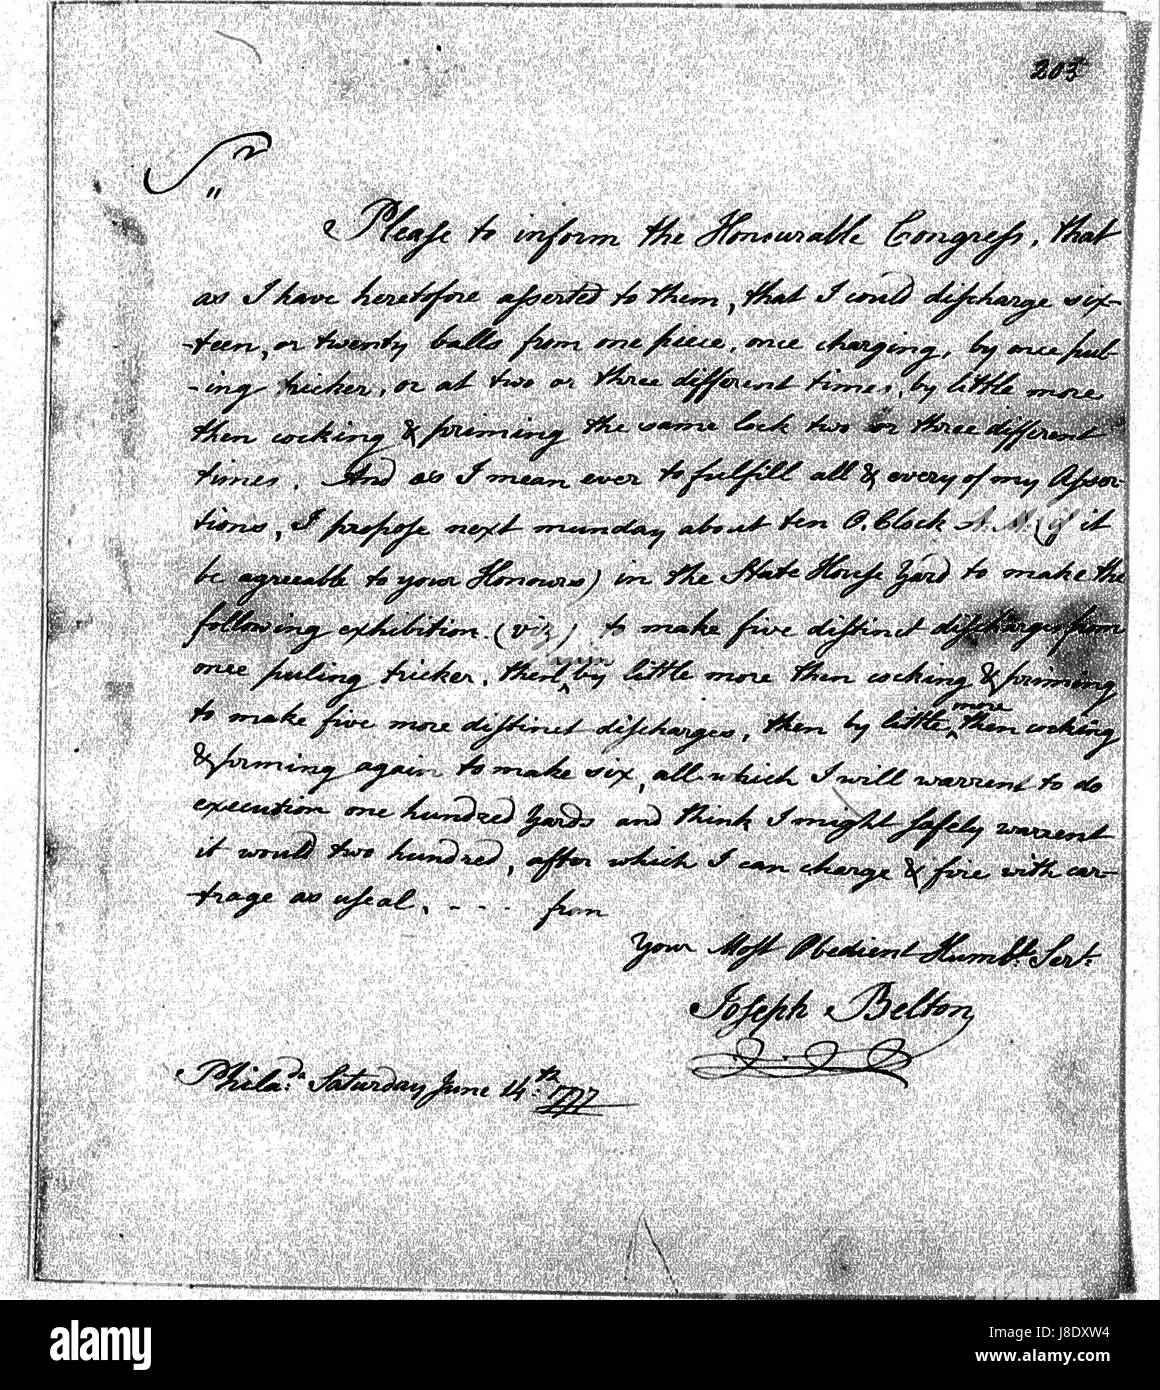 203
Sr
"
Please to inform the Honourable Congress, that
as I have heretofore asserted to them, that I could discharge six-
-teen, or twenty balls from one piece, once charging, by once pul-
-ing tricker, or at two or three different times, by little more
then cocking & priming the same lock two or three different
times. And as I mean ever to fulfill all & every of my Asser-
tions, I propose next munday about ten O.Clock A.M. (if it
be agreeable to your Honours) in the State House Yard to make the
following exhibition (viz) to make five distinct discharges from
once puling tricker, then by little more then cocking & priming
more
to make five more distinct discharges, then by little ‸ then cocking
& priming again to make six, all which I will warrent to do
execution one hundred Yards and think I might safely warrent
it would two hundred, after which I can charge & fire with car-
-trage as useal. - - - from
Your Most Obedient Humb.le Ser.t
Joseph Belton
Phila.da Saturday June 14.th 1777
alamy
Image ID: J8DXW4
www.alamy.com